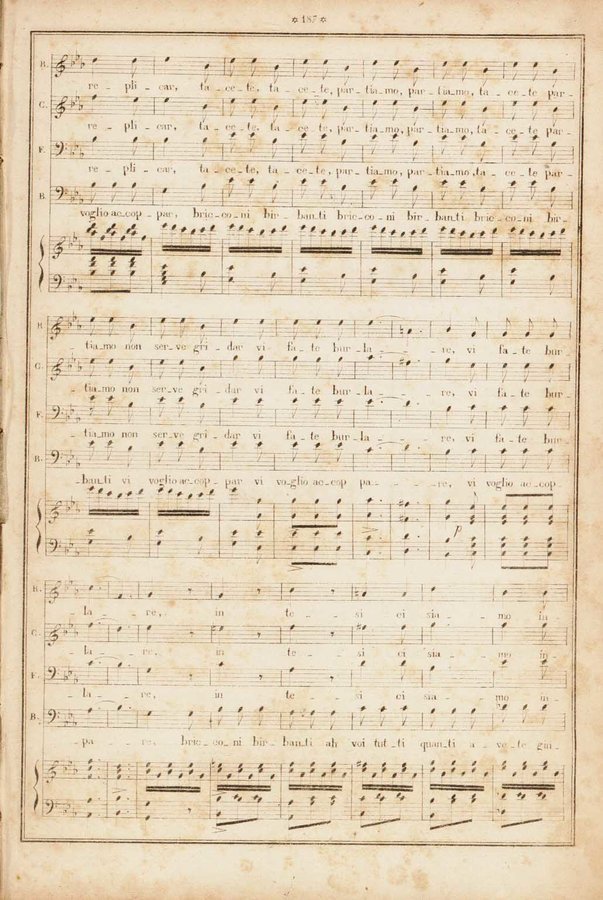 * 187 *
B. re - pli - car, ta - ce - te, ta - ce - te, par - tia - mo, par - tia - mo, ta - ce - te par -
C. re - pli - car, ta - ce - te, ta - ce - te, par - tia - mo, par - tia - mo, ta - ce - te par -
F. re - pli - car, ta - ce - te, ta - ce - te, par - tia - mo, par - tia - mo, ta - ce - te par -
B. voglio ac - cop - par, bric - co - ni bir - ban - ti bric - co - ni bir - ban - ti bric - co - ni bir -
B. - tia - mo non ser - ve gri - dar vi fa - te bur - la - - - re, vi fa - te bur -
C. - tia - mo non ser - ve gri - dar vi fa - te bur - la - - - re, vi fa - te bur -
F. - tia - mo non ser - ve gri - dar vi fa - te bur - la - - - re, vi fa - te bur -
B. - ban - ti vi voglio ac - cop - par vi vo - glio ac - cop pa - - - re, vi voglio ac - cop
p
B. la - - re, in te - - si ci sia - - mo in
C. la - - re, in te - - si ci sia - - mo in -
F. la - - re, in te - - si ci sia - - mo in
B. pa - - re, bric - co - ni bir - ban - ti ah voi tut - ti quan - ti a - ve - te giu -